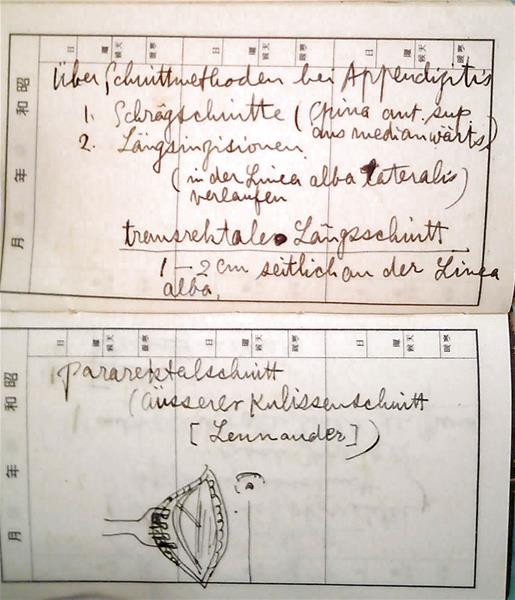 Über Schnittmethoden bei Appendizitis
1. Schrägschnitte (Spina ant. sup.
aus medianwärts)
2. Längsinzisionen
(in der Linea alba lateralis)
verlaufen
transrektaler Längsschnitt
1–2 cm seitlich an der Linea
alba,
昭和 年 月
日 曜 天候 寒暖 日 曜 天候 寒暖 日 曜 天候 寒暖
pararektalschnitt
(äusserer Kulissenschnitt
[Lennander])
昭和 年 月
日 曜 天候 寒暖 日 曜 天候 寒暖 日 曜 天候 寒暖